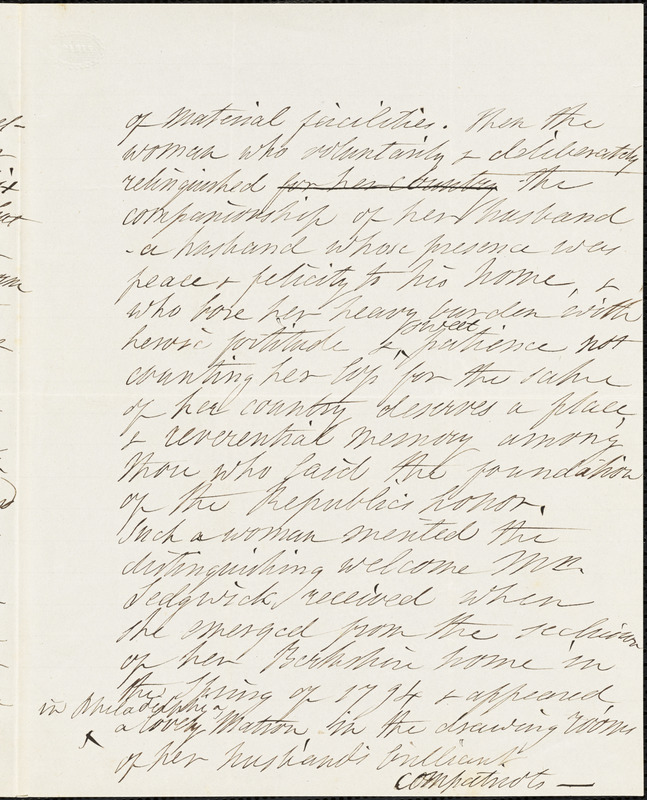 of material facilities. Then the
woman who voluntarily & deliberately
relinquished for her country the
companionship of her husband
- a husband whose presence was
peace & felicity to his home, &
who bore her heavy burden with
heroic fortitude & sweet patience not
counting her loss for the sake
of her country deserves a place
& reverential memory among
those who laid the foundation
of the Republic's honor.
Such a woman merited the
distinguishing welcome Mrs.
Sedgwick received when
she emerged from the seclusion
of her Berkshire home in
the Spring of 1794 & appeared
in Philadelphia
a lovely Matron in the drawing rooms
of her husband's brilliant
compatriots —